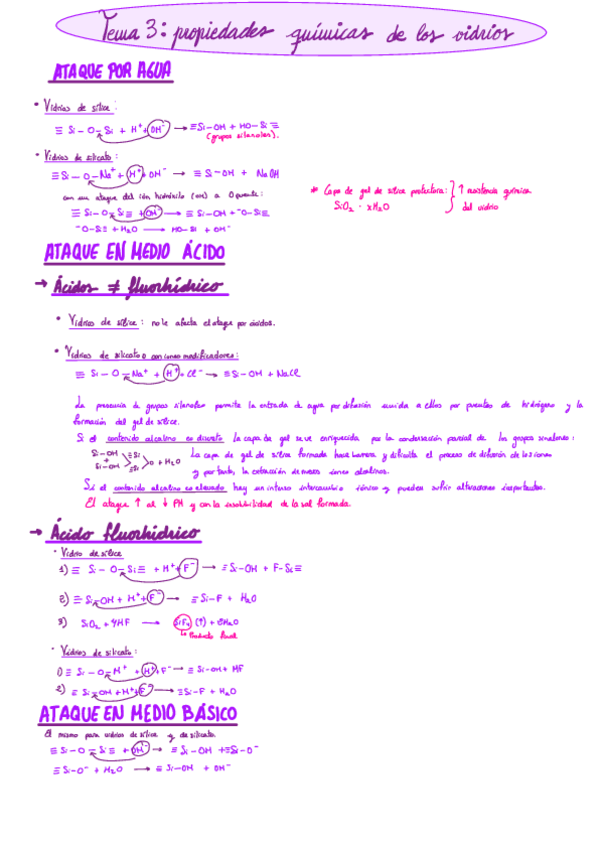 Tema 3: propiedades químicas de los vidrios
ATAQUE POR AGUA
• Vidrios de sílice:
≡ Si - O - Si ≡ + H⁺ + OH⁻ → ≡Si-OH + HO-Si ≡
(grupos silanoles).
• Vidrios de silicato:
≡ Si - O - Na⁺ + H⁺ + OH⁻ → ≡ Si-OH + NaOH
con un ataque del ión hidroxilo (OH) a O puente:
≡ Si - O - Si ≡ + OH⁻ → ≡ Si-OH + ⁻O-Si≡
⁻O-Si≡ + H₂O → HO-Si + OH⁻
* Capa de gel de sílice protectora: ↑ resistencia química
SiO₂ · xH₂O del vidrio
ATAQUE EN MEDIO ÁCIDO
→ Ácidos ≠ fluorhídrico
• Vidrios de sílice: no le afecta el ataque por ácidos.
• Vidrios de silicato o con iones modificadores:
≡ Si - O - Na⁺ + H⁺ + Cl⁻ → ≡Si-OH + NaCl
La presencia de grupos silanoles permite la entrada de agua por difusión unida a ellos por puentes de hidrógeno y la
formación del gel de sílice.
Si el contenido alcalino es discreto la capa de gel se ve enriquecida por la condensación parcial de los grupos silanoles:
Si-OH + Si-OH > ≡Si ≡Si > O + H₂O
La capa de gel de sílice formada hace barrera y dificulta el proceso de difusión de los iones
y por tanto, la extracción de mases iones alcalinos.
Si el contenido alcalino es elevado hay un intenso intercambio iónico y pueden sufrir alteraciones importantes.
El ataque ↑ al ↓ PH y con la insolubilidad de la sal formada.
→ Ácido fluorhídrico
• Vidrio de sílice
1) ≡ Si - O - Si ≡ + H⁺ + F⁻ → ≡Si-OH + F-Si≡
2) ≡ Si-OH + H⁺ + F⁻ → ≡Si-F + H₂O
3) SiO₂ + 4HF → SiF₄ (↑) + 2H₂O
↳ Producto final
• Vidrios de silicato:
1) ≡ Si - O - M⁺ + H⁺ + F⁻ → ≡Si-OH + MF
2) ≡ Si-OH + H⁺ + F⁻ → ≡Si-F + H₂O
ATAQUE EN MEDIO BÁSICO
El mismo para vidrios de sílice y de silicato.
≡ Si - O - Si ≡ + OH⁻ → ≡ Si - OH + ≡Si-O⁻
≡ Si-O⁻ + H₂O → ≡ Si-OH + OH⁻